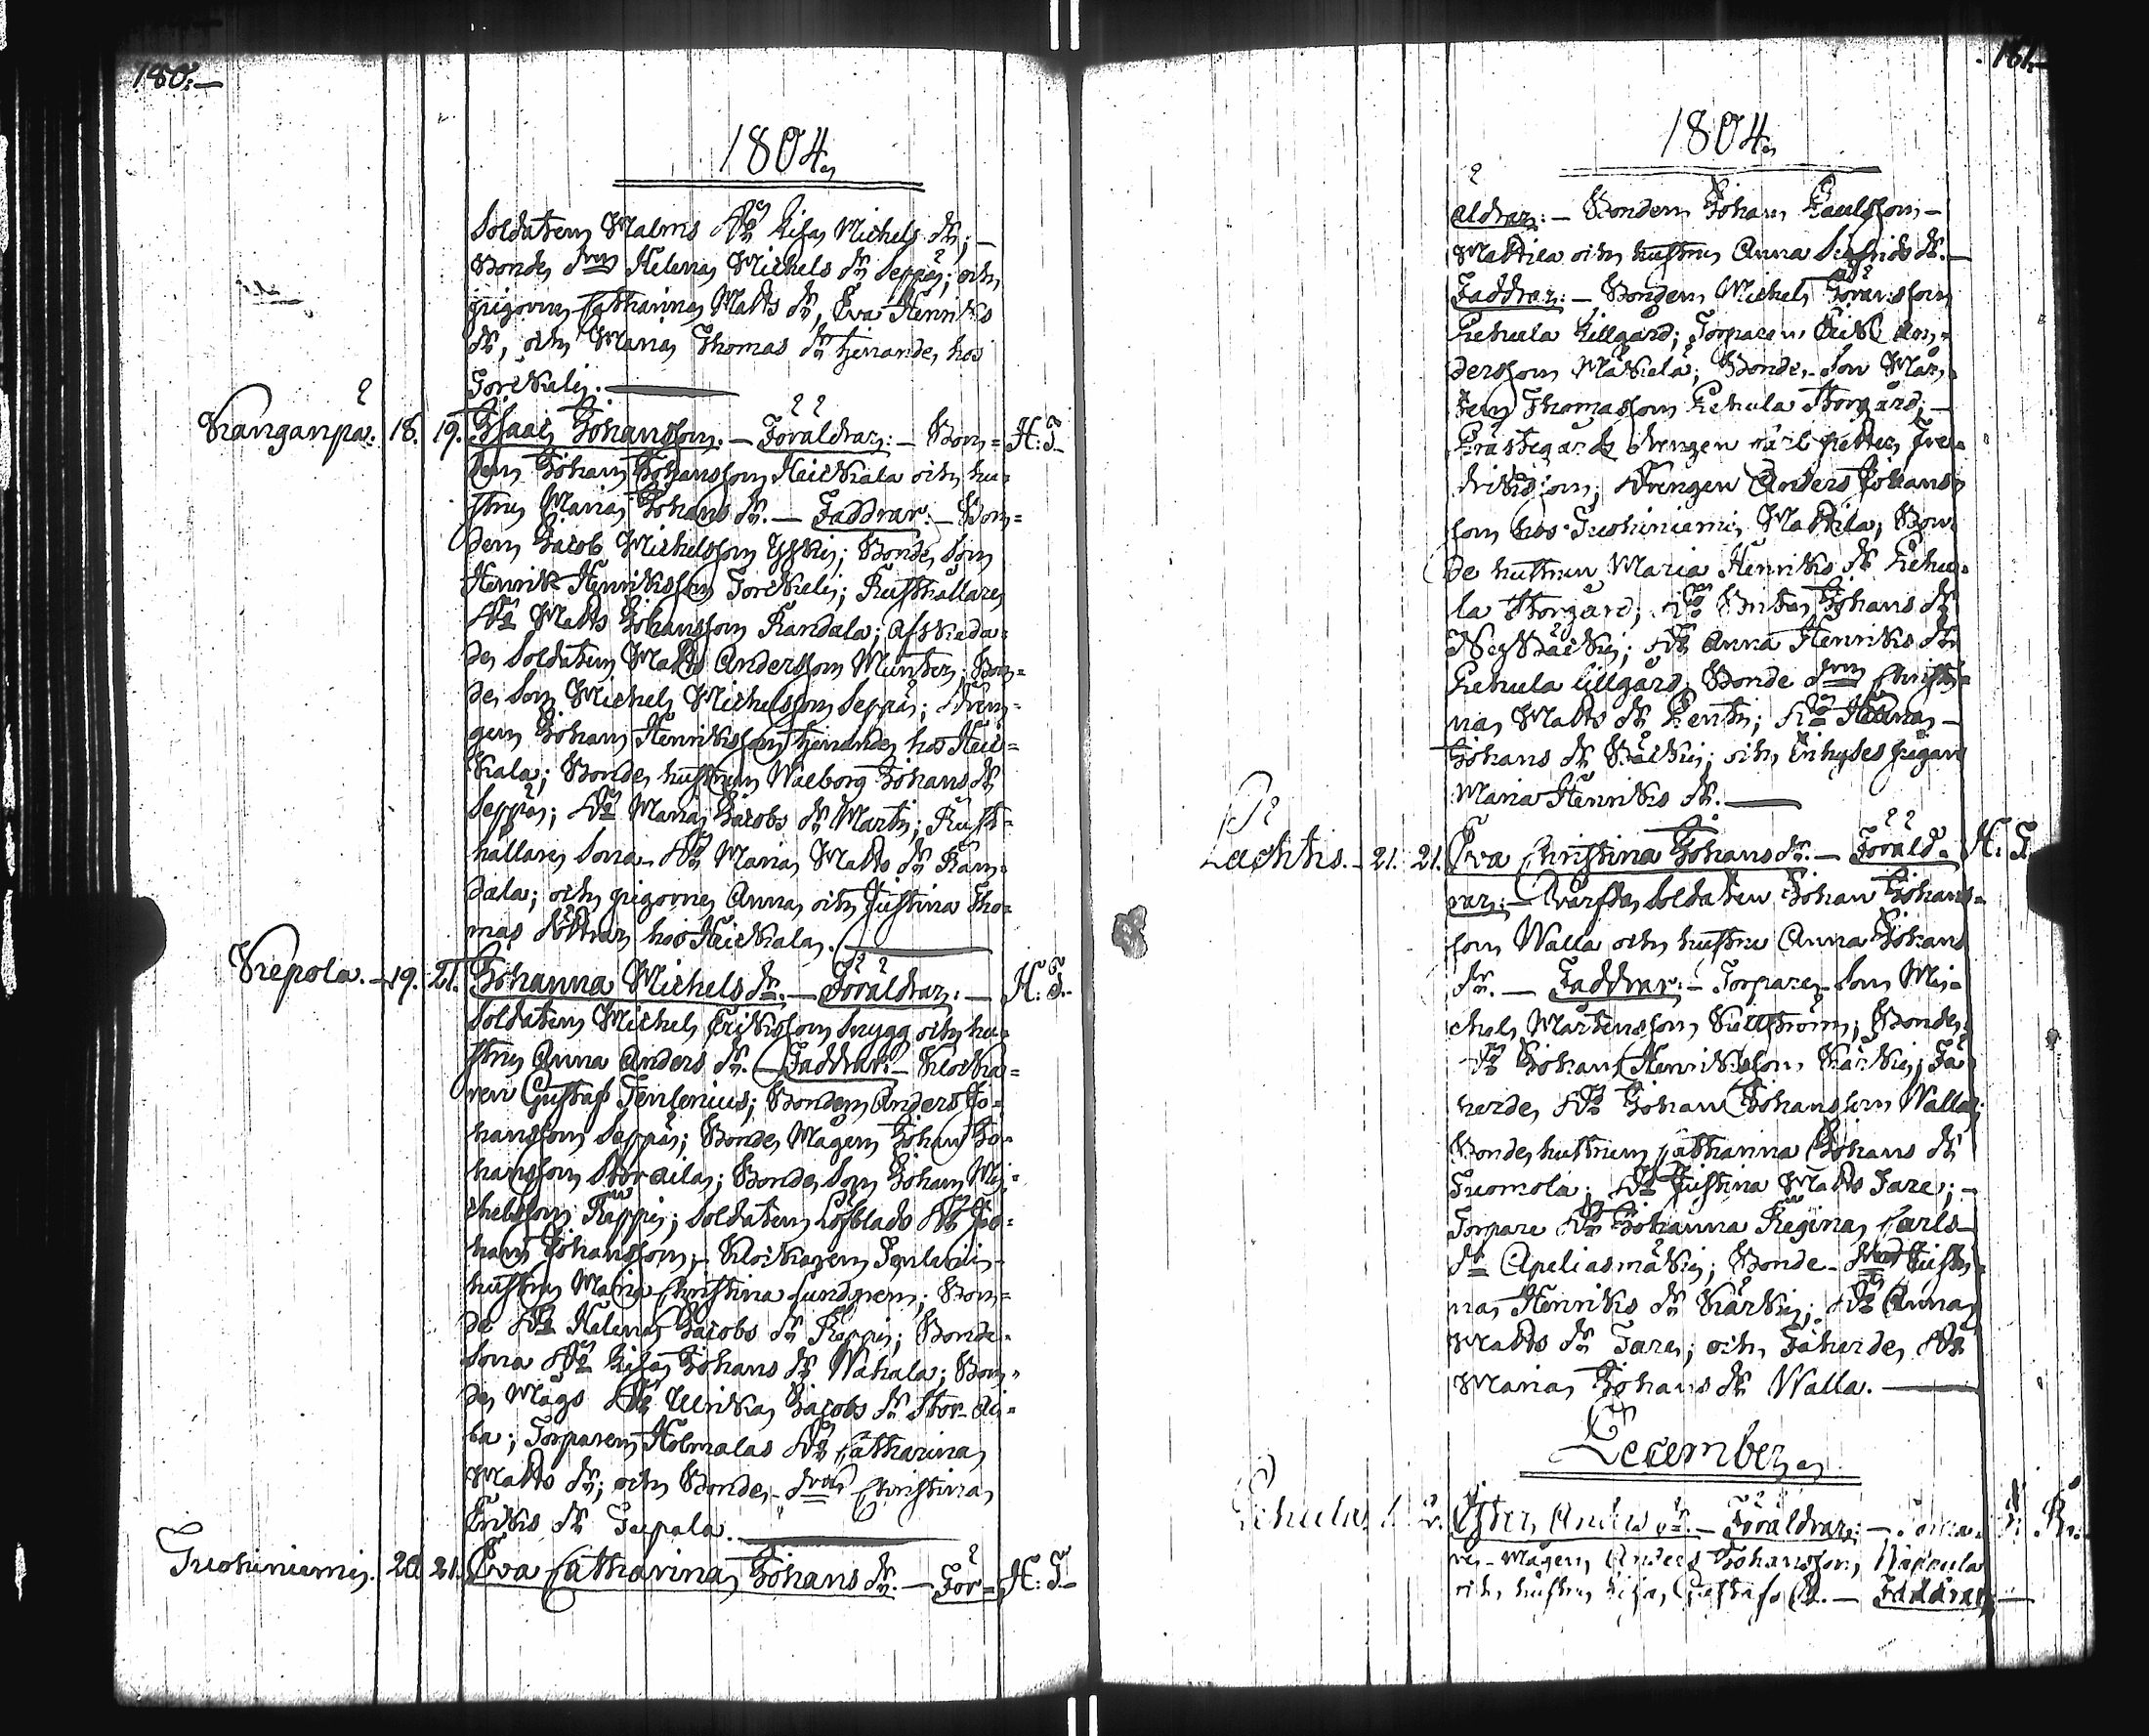 180.
1804
Soldaten Malms D:o Lisa Michels dr; —
Bonde dren Helena Michels dr Seppä; och
pigorne Catharina Matts dr, Eva Henriks
dr, och Maria Thomas dr tjenande hos
Torckeli. —
Kanganpä. 18. 19. Isaac Johansson. — Föräldrar: — Bon= H: T.
den Johan Johansson Heickala och hu=
stru Maria Johans dr. — Faddrar: — Bon=
den Jacob Michelsson Yski; Bonde Son
Henrik Henriksson Torckeli; Rusthållare
D:o Matts Johansson Randala; afskeda=
de Soldaten Matts Andersson Munter; Bon=
de Son Michel Michelsson Seppä; Dren=
gen Johan Henriksson tjenande hos Heic=
kala; Bonde hustrun Walborg Johans dr
Seppä; D:o Maria Jacobs dr Marti; Rust=
hållare Sona D:o Maria Matts dr Ran=
dala; och pigorne Anna och Justina Tho=
mas döttrar hos Heickala. —
Krepola. — 19. 21. Johanna Michels dr. — Föräldrar: — H: T.
Soldaten Michel Eriksson Snygg och hu=
stru Anna Anders dr. — Faddrar: — Klocka=
ren Gustaf Tenlenius; Bonden Anders Jo=
hansson Seppä; Bonde Mågen Johan Jo=
hansson Storaila; Bonde Son Johan Mi=
chelsson Räppi; Soldaten Löfblads D:o Jo=
han Johansson; Klockaren Tenlenii
hustru Maria Christina Lundgren; Bon=
de D:o Helena Jacobs dr Räppi; Bonde
Sona D:o Lisa Johans dr Wahala; Bon=
de Mågs D:o Ulrika Jacobs dr Stor-ai=
la; Torparen Holmalas D:o Catharina
Matts dr; och Bonde dren Christina
Eriks dr Tupala. —
Tuohiniemi. 20. 21. Eva Catharina Johans dr. — För= H: T.
181.
1804
äldrar: — Bonden Johan Paulsson —
Mattila och hustru Anna Sigfrids dr. —
Faddrar: — Bonden Michel Göransson
Lehula Lillgård; Torparen Erik An=
dersson Mäkelä; Bonde-Son Mår=
ten Thomasson Lehula Storgård; —
Prästegårds drengen Carl Petter Fre=
driksson; Drengen Anders Johans=
son hos Tuohiniemi Mattila; Bon=
de hustrun Maria Henriks dr Lehu=
la Storgård; D:o Brita Johans dr
Bäcki; D:o Anna Henriks dr
Lehula Lillgård; Bonde dren Christi=
na Matts dr Pentti; D:o Helena —
Johans dr Bäcki; och Inhyses pigan
Maria Henriks dr. —
Lachtis. — 21. 21. Eva Christina Johans dr. — Föräld= H. T.
rar: — Wärfda Soldaten Johan Johans=
son Walla och hustru Anna Johans
dr. — Faddrar: — Torpare Son Mi=
chel Mårtensson Kullström; Bonde
D:o Johan Henriksson Kärki; Få=
herde D:o Johan Johansson Walla;
Bonde hustrun Catharina Johans dr
Tuomola; D:o Justina Matts Tare; —
Torpare D:o Johanna Regina Carls
dr Apeliasmäki; Bonde dren Justi=
na Henriks dr Kärki; D:o Anna
Matts dr Tare; och Fäherde D:o
Maria Johans dr Walla. —
December
Lehula 1. 2. Ester Anders dr. — Föräldrar: — Torpa=
re-Mågen Anders Johansson
och hustru Lisa Gustafs dr. — Faddrar: —